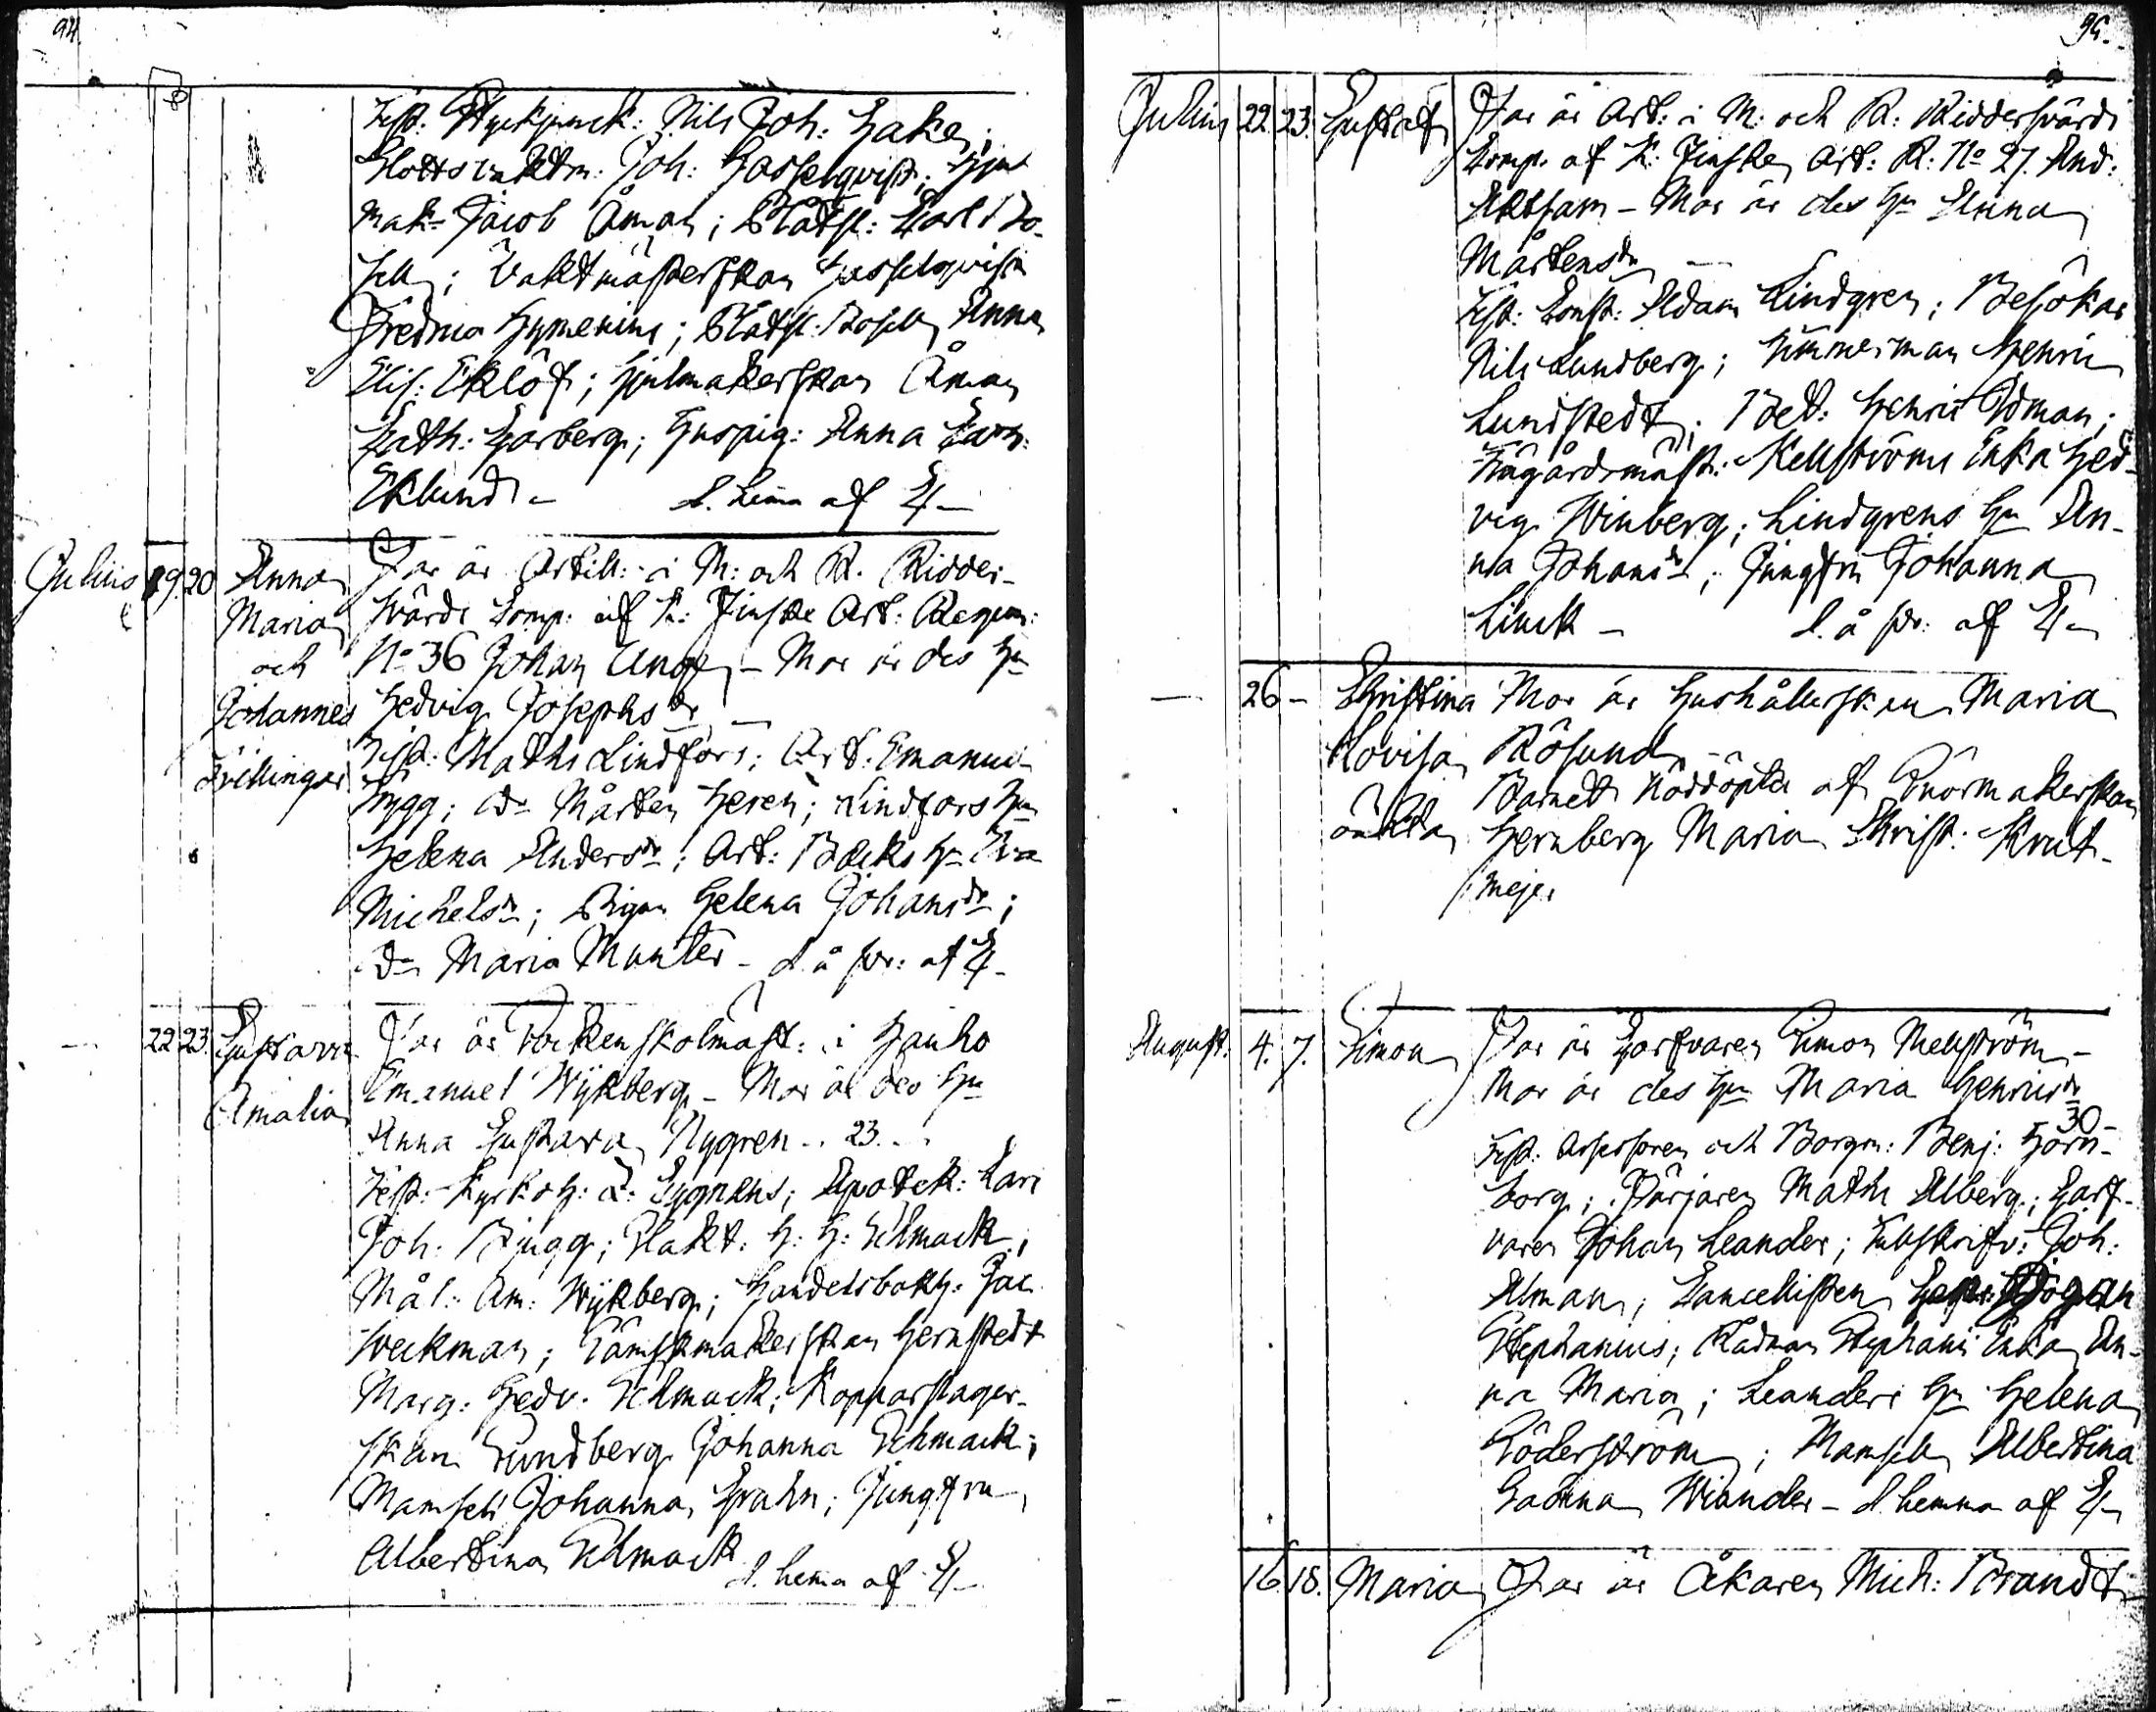 94.
Test: Styckjunck: Nils Joh: Hake;
Slottsvaktm: Joh: Hasselqvist; Hjul
mak: Jacob Åman; Plåtsl: Carl Bo-
sell; Vaktmästerskan Hasselqvist
Fredrica Hymenius; Plåtsl: Bosell Anna
Elis: Eklöf; Hjulmakerskan Åman
Cath: Garberg; Huspig: Anna
Eklund - d. hema af G-
Julius 19 20 Anna Far är Artill: i M: och R. Ridder-
Maria svärds Comp: af K: Finska Art: Regem:
och No 36 Johan Unge - Mor är des Hu
Johannes Hedvig Josephsdr -
Tvillingar Test: Maths Lindfors; Art: Emanuel
Trygg; do Mårten Heren; Lindfors Hu
Helena Andersdr; Art: Bäcks Hu Eva
Michelsdr; Pigan Helena Johansdr;
do Maria Munter - d. å sv: af G-
- 22 23. Gustava Far är Trockenskolmäst: i Hauho
Amalia Emanuel Wykberg - Mor är des Hu
Anna Gustava Nygren - 23.
Test: Kyrkoh: Z: Cygnæus; Apotek: Carl
Joh: Bjugg; Fakt: H: H: Schmack;
Mål: Am: Wykberg; Handelsbokh: Jac
Weckman; Sämskmakerskan Hernstedt
Marg: Hedv: Schmack; Kopparslager-
skan Sundberg Johanna Schmack;
Mamsell Johanna Grahn; Jungfru
Albertina Schmack d. hema af G-
95.
Julius 22. 23. Gustaf Far är Art: i M: och R: Riddersvärds
Comp. af K: Finska Art: R: No 27. And:
Aktsam - Mor är des Hu Anna
Mårtensdr -
Test: Const: Adam Lindgren; Besökar
Nils Lundberg; Timmerman Henric
Lundstedt; Bet: Henric Idman;
Trägårdsmäst: Kellströms Enka Hed-
vig Winberg; Lindgrens Hu An-
na Johansdr; Jungfru Johanna
Linck - d. å sv: af G-
- 26 - Christina Mor är Hushållerskan Maria
Lovisa Rösund -
oäkta Barnet nöddöptes af Snörmakerskan
Hernberg Maria Christ: Krut-
mejer
August: 4. 7. Simon Far är Garfvaren Simon Mellström -
Mor är des Hu Maria Henricsdr
30 -
Test: Assessoren och Borgm: Benj: Horn-
borg; Färjaren Maths Alberg; Garf-
varen Johan Leander; Tullskrifv: Joh:
Alman; Cancellisten
Stephanius; Rådman Stephanii Enka An-
na Maria; Leanders Hu Helena
Söderström; Mamsell Albertina
Wiander - d. hemma af G-
16. 18. Maria Far är Åkaren Mich: Brandt